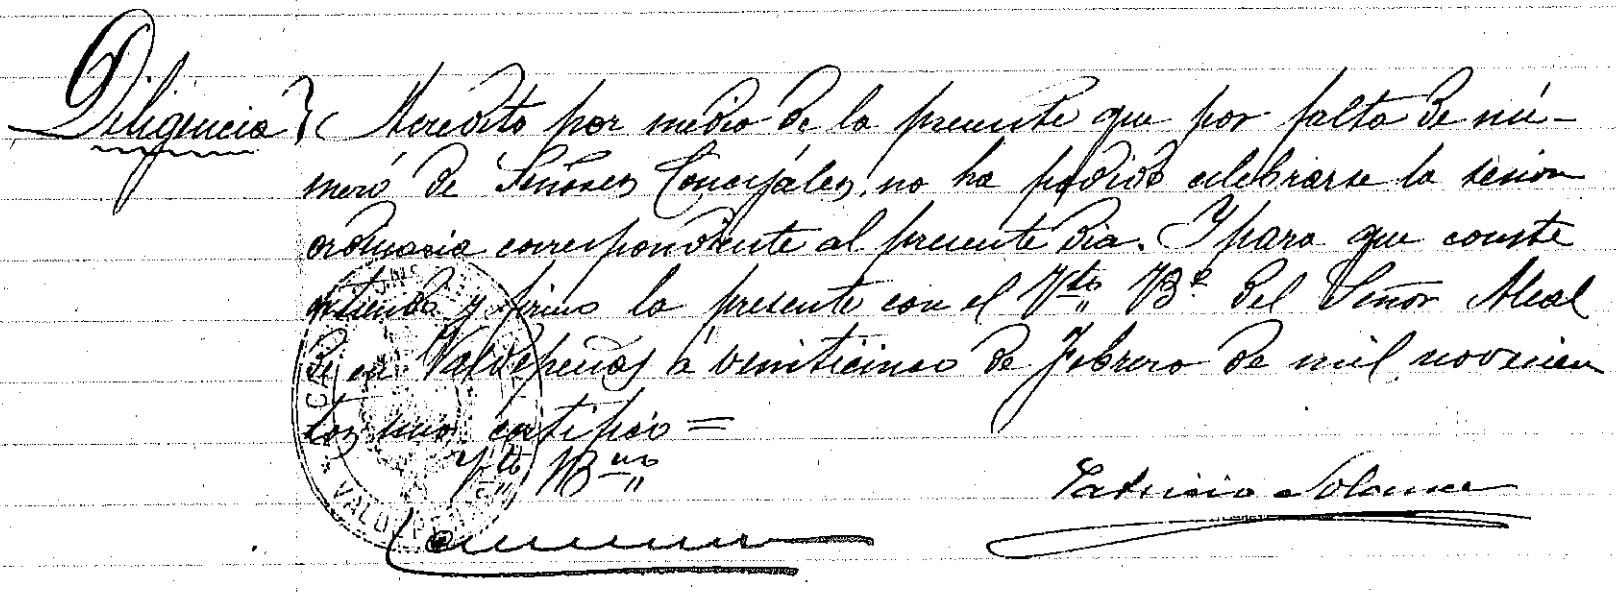 Diligencia} Acredito por medio de la presente que por falta de nú-
mero de Señores Concejales, no ha podido celebrarse la sesion
ordinaria correspondiente al presente dia. Y para que conste
estiendo y firmo la presente con el Vto Bº del Señor Alcal
de en Valdepeñas á veinticinco de Febrero de mil novecien
tos uno certifico =
Vto Bno
Patricio Solance
VALDEPEÑAS